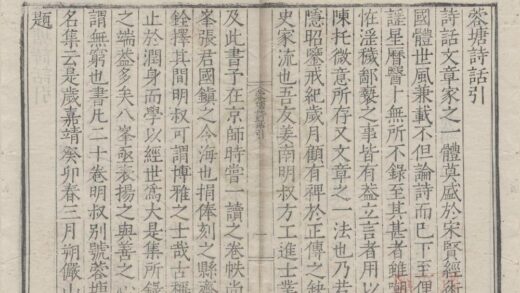 蓉塘詩話引
詩話文章家之一體莫盛於宋賢經術
國體世風兼載不但論詩而已下至俚
謡星曆醫卜無所不錄至其甚者雖嘲
怪淫穢鄙褻之事皆有益立言者用以
陳托微意所存又文章之一法也乃若
隱昭鑒戒紀歲月顧有裨於正傳之缺
史家流也吾友姜南明叔方工進士業
及此書予在京師時嘗一讀之卷帙尚
峯張君國鎮之令海也捐俸刻之縣齋
銓擇其間明叔可謂博雅之士哉古稱
止於潤身而學以經世爲大是集所錄
之端益多矣八峯亟表揚之與善之心
謂無窮也書凡二十卷明叔别號蓉塘
名集云是歲嘉靖癸卯春三月朔儼山
題